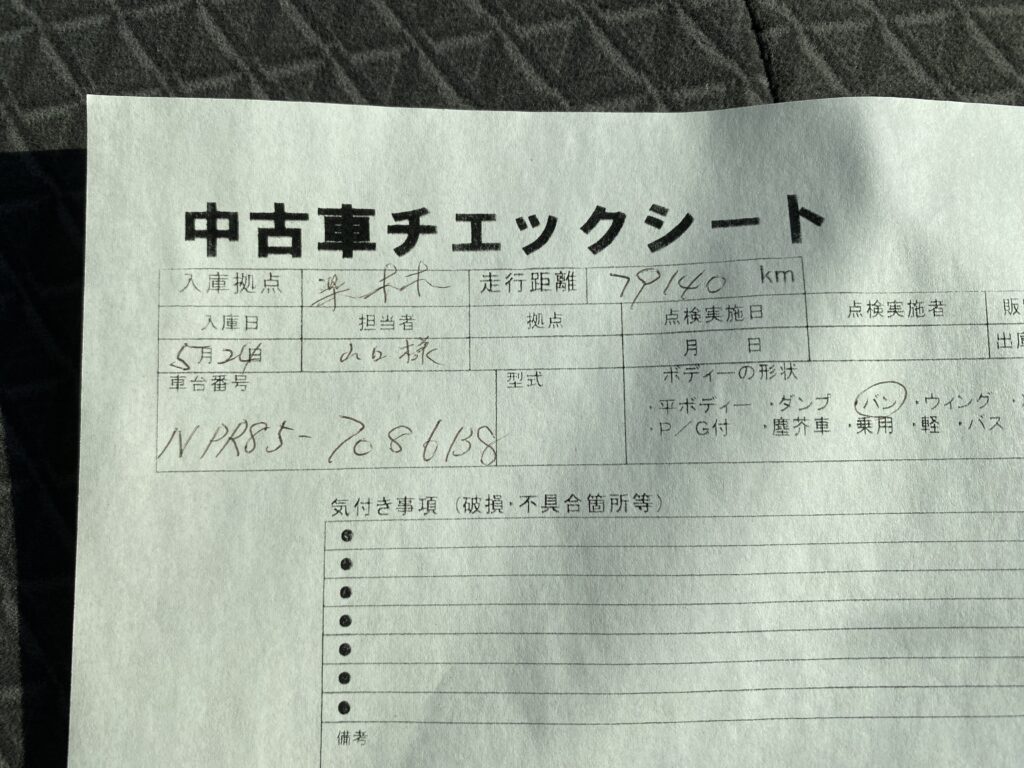 中古車チェックシート
入庫拠点 走行距離 79140 km
入庫日 担当者 拠点 点検実施日 点検実施者 販
5月24日 山口様 月 日 出庫
車台番号 型式 ボディーの形状
・平ボディー ・ダンプ ・バン ・ウィング
・P/G付 ・塵芥車 ・乗用 ・軽 ・バス
NPR85-
気付き事項(破損・不具合箇所等)
●
●
●
●
●
●
●
備考